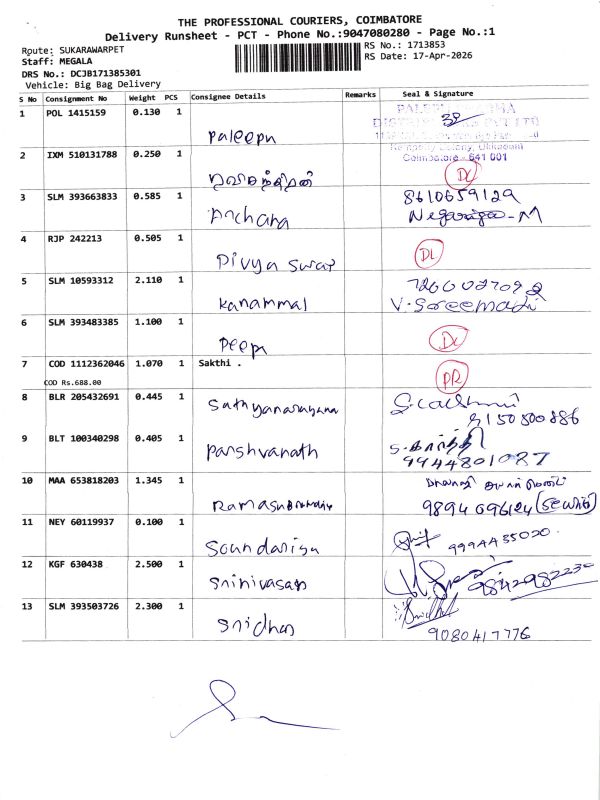 THE PROFESSIONAL COURIERS, COIMBATORE
Delivery Runsheet - PCT - Phone No.:9047080280 - Page No.:1
Route: SUKARAWARPET
RS No.: 1713853
Staff: MEGALA
RS Date: 17-Apr-2026
DRS No.: DCJB171385301
Vehicle: Big Bag Delivery
S No Consignment No Weight PCS Consignee Details Remarks Seal & Signature
1 POL 1415159 0.130 1 Paleepu
Coimbatore - 641 001
2 IXM 510131788 0.250 1 DL
3 SLM 393663833 0.585 1 Archana 8610659129
4 RJP 242213 0.505 1 Divya swar DL
5 SLM 10593312 2.110 1 Kanammal
6 SLM 393483385 1.100 1 Peepu DL
7 COD 1112362046 1.070 1 Sakthi . PR
COD Rs.688.00
8 BLR 205432691 0.445 1 Sathyanarayana
9 BLT 100340298 0.405 1 Parshvanath
9944801087
10 MAA 653818203 1.345 1
9894096124
11 NEY 60119937 0.100 1 Soundariya 9994435020
12 KGF 630438 2.500 1 Srinivasan 9842982230
13 SLM 393503726 2.300 1 Sridhar
9080417776